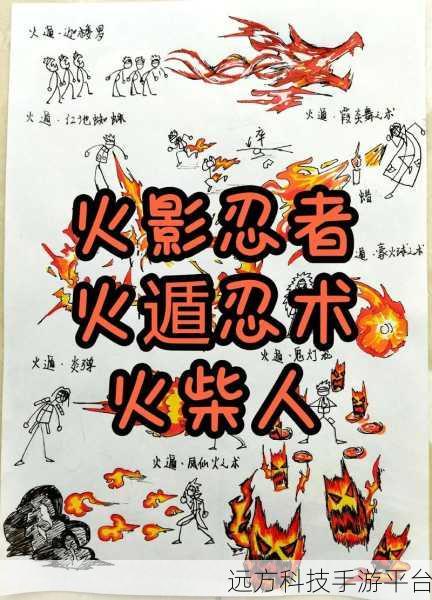 火遁·迦楼罗
火遁·红地蜘蛛
火遁·霞炎舞之术
卒
蜡
遁·豪火球之术
火影忍者
火遁忍术
火柴人
火遁·炎弹
火遁·鬼灯
火遁·凤仙火之术
远方科技手游平台